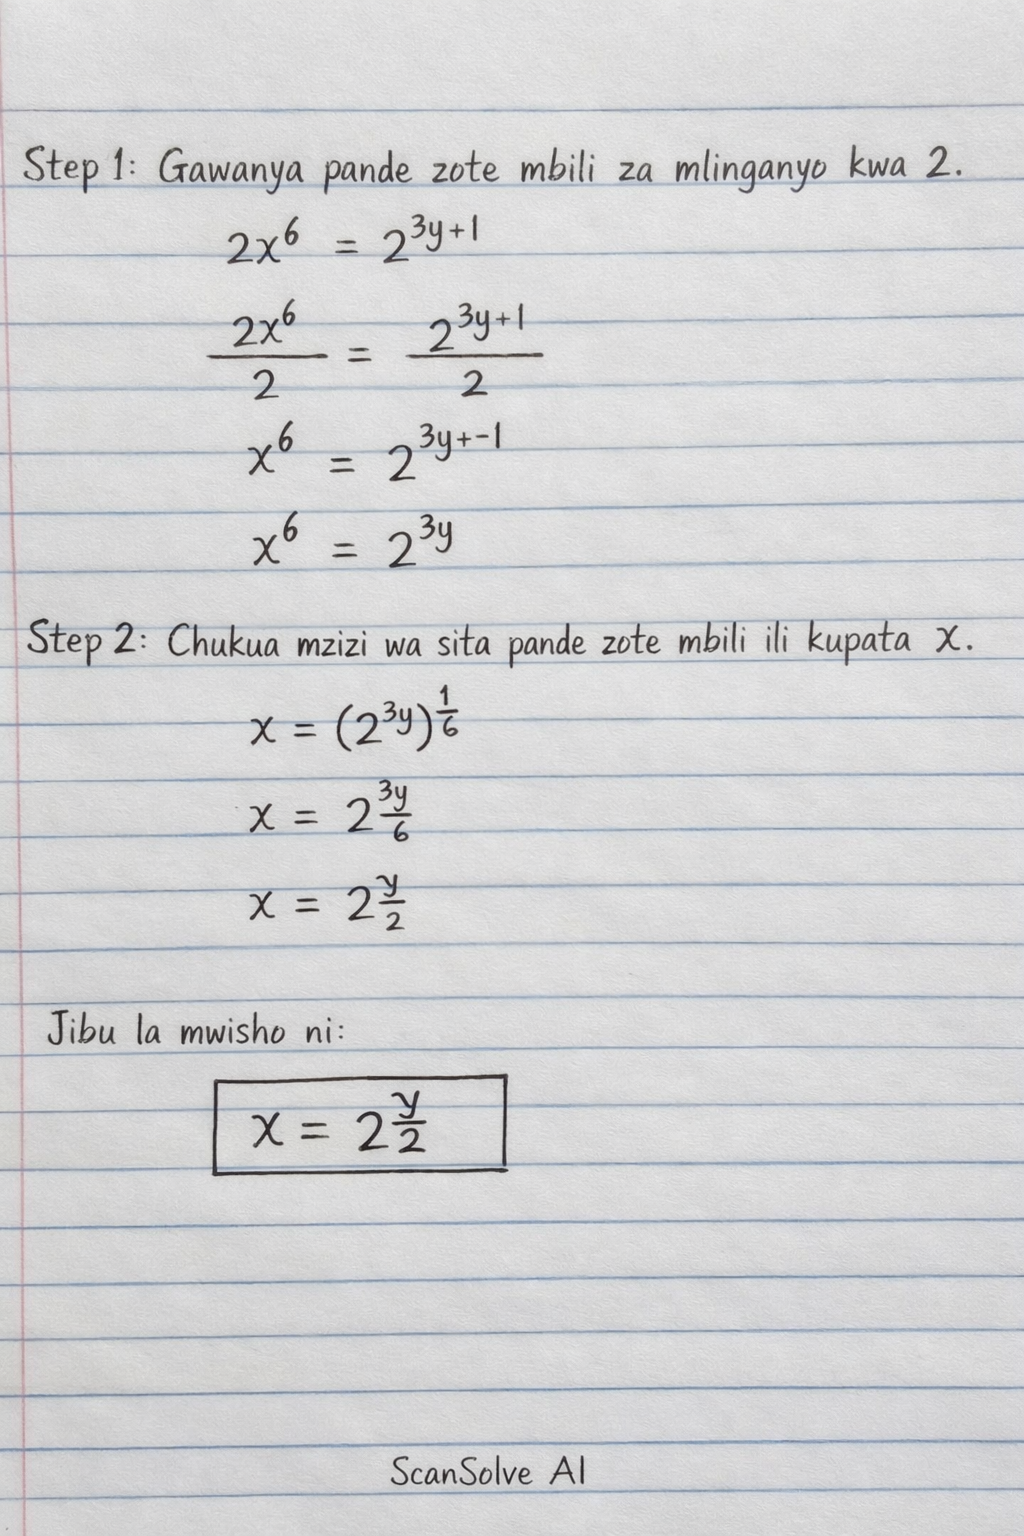 Step 1: Gawanya pande zote mbili za mlinganyo kwa 2.
2x^6 = 2^{3y+1}
\frac{2x^6}{2} = \frac{2^{3y+1}}{2}
x^6 = 2^{3y+-1}
x^6 = 2^{3y}
Step 2: Chukua mzizi wa sita pande zote mbili ili kupata x.
x = (2^{3y})^{\frac{1}{6}}
x = 2^{\frac{3y}{6}}
x = 2^{\frac{y}{2}}
Jibu la mwisho ni:
x = 2^{\frac{y}{2}}
ScanSolve AI